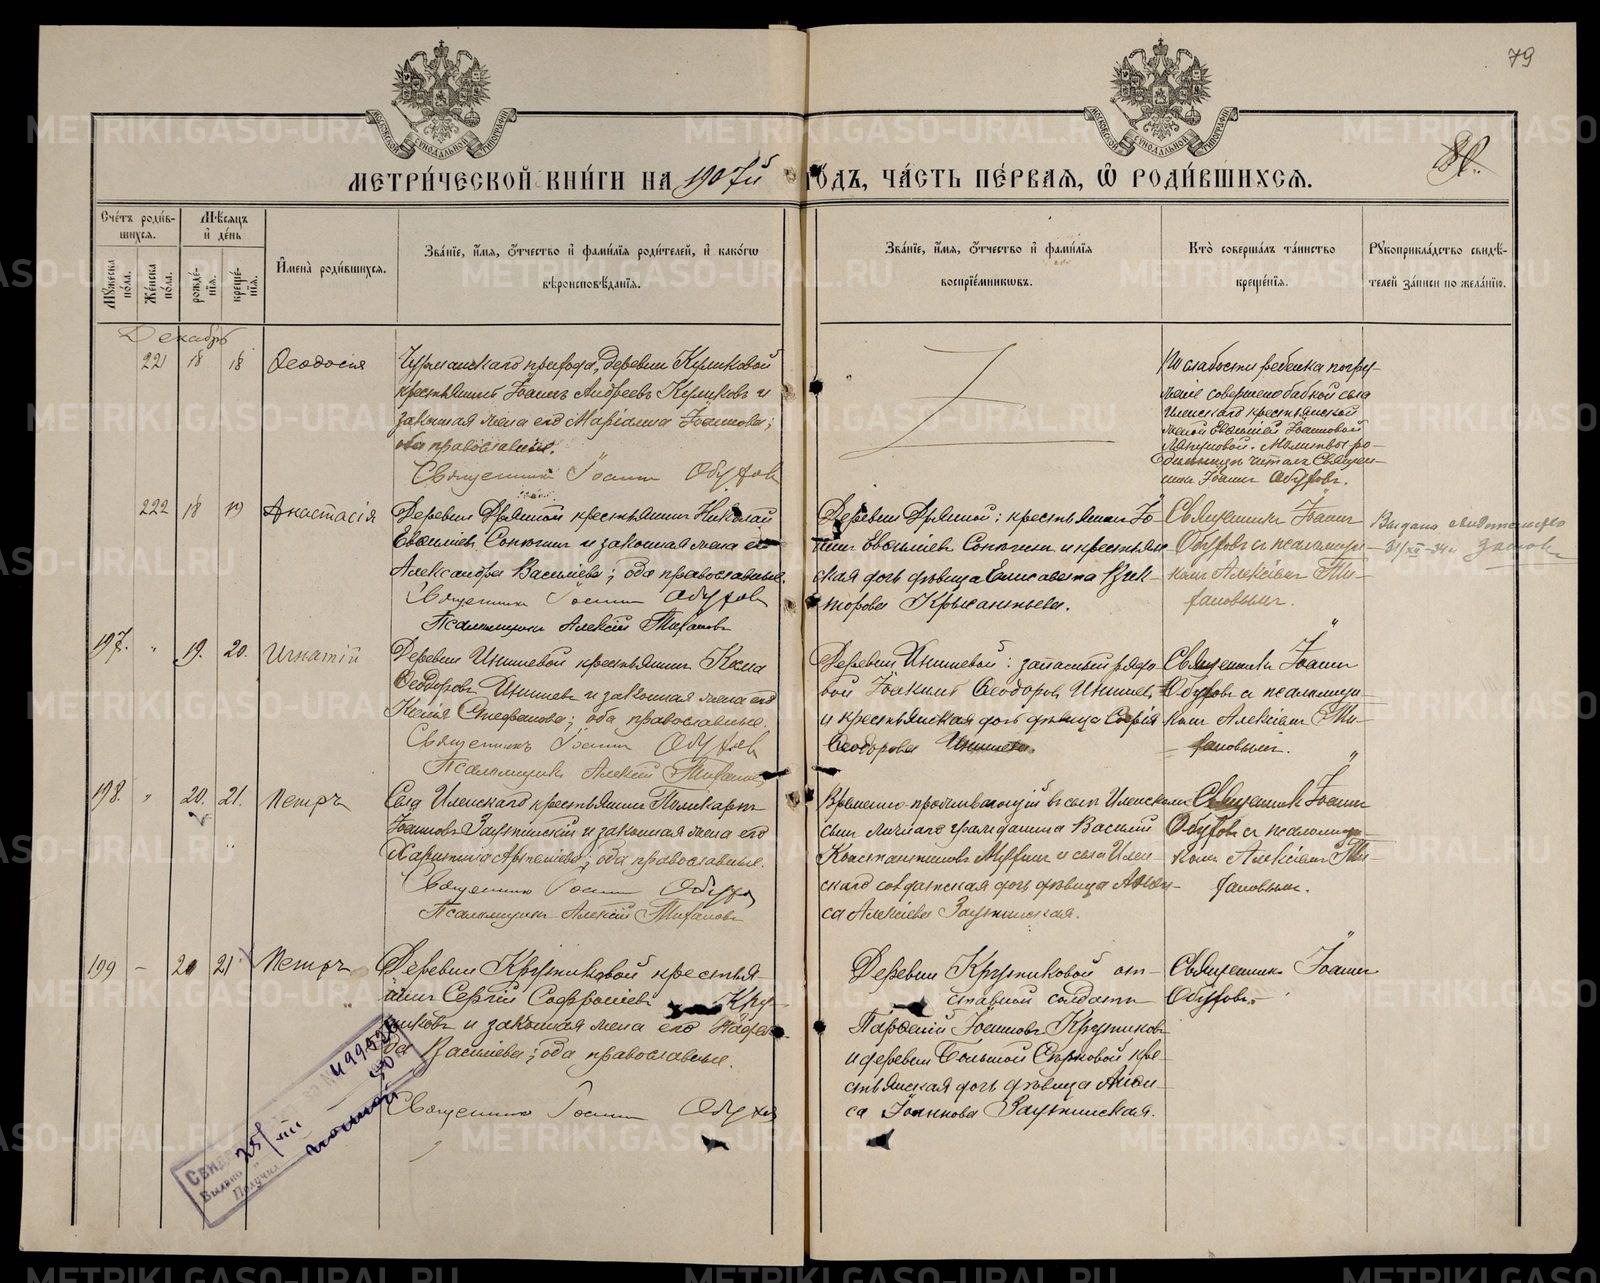 79
80.
МЕТРИ́ЧЕСКОЙ КНИ́ГИ НА 1907й ГОДЪ, ЧА́СТЬ ПЕ́РВАЯ, Ѡ РОДИ́ВШИХСЯ.
Сче́тъ роди́в-
шихся.
Мꙋжеска по́ла.
Же́нска по́ла.
Мѣ́сяцъ
и҆ де́нь
рожде́-
нїѧ.
креще́-
нїѧ.
И҆мена̀ роди́вшихся.
Зва́нїе, и҆́мя, ѻ҆́тчество и҆ фами́лїѧ роди́телей, и҆ како́гѡ
вѣроисповѣ́данїѧ.
Зва́нїе, и҆́мя, ѻ҆́тчество и҆ фами́лїѧ
воспрїе́мникѡвъ.
Кто̀ соверша́лъ та́инство
креще́нїѧ.
Рꙋкоприкла́дство свидѣ́-
телей за́писи по жела́нїю.
Декабрь
221 18 18 Ѳеодосія
прихода, Деревни Куликовой
крестьянинъ Іоаннъ Андреевъ Куликовъ и
законная жена его Маріанна Іоаннова;
оба православные.
Священникъ Іоаннъ Обуховъ
По слабости ребенка погру-
женіе совершено бабкой села
Иленскаго крестьянской
женой Евгеніей Іоанновой
. Молитвы ро-
дильницѣ читалъ Священ-
никъ Іоаннъ Обуховъ.
222 18 19 Анастасія
Деревни Дряной крестьянинъ Николай
и законная жена его
Александра Васильева; оба православные.
Священникъ Іоаннъ Обуховъ
Псаломщикъ Алексій Тихановъ
Деревни Дряной: крестьянинъ Іо-
аннъ и крестьян-
ская дочь дѣвица Елисавета Вик-
торова Крысантьева.
Священникъ Іоаннъ
Обуховъ съ псаломщи-
комъ Алексіемъ Ти-
хановымъ.
Выдано свидетельство
31/XII-34 г.
197. " 19. 20. Игнатій
Деревни Инишевой крестьянинъ Козма
Ѳеодоровъ Инишевъ и законная жена его
Ксенія Стефанова; оба православные.
Священникъ Іоаннъ Обуховъ
Псаломщикъ Алексій Тихановъ
Деревни Инишевой: запасный рядо-
вой Іоакимъ Ѳеодоровъ Инишевъ
и крестьянская дочь дѣвица Софія
Ѳеодорова Инишева.
Священникъ Іоаннъ
Обуховъ съ псаломщи-
комъ Алексіемъ Ти-
хановымъ.
198. " 20. 21. Петръ
Села Иленскаго крестьянинъ Поликарпъ
Іоанновъ Заутинскій и законная жена его
Харитина Артемьева; оба православные.
Священникъ Іоаннъ Обуховъ
Псаломщикъ Алексій Тихановъ
Временно проживающій въ селѣ Иленскомъ
сынъ личнаго гражданина Василій
Константиновъ и села Илен-
скаго солдатская дочь дѣвица Анѳи-
са Алексіева Заутинская.
Священникъ Іоаннъ
Обуховъ съ псаломщи-
комъ Алексіемъ Ти-
хановымъ.
199 - 20 21 Петръ
Деревни Крутиковой крестья-
нинъ Сергій Софроніевъ Кру-
тиковъ и законная жена его
Васильева; оба православные.
Священникъ Іоаннъ Обуховъ
Деревни Крутиковой от-
ставной солдатъ
Парѳеній Іоанновъ Крутиковъ
и деревни Большой Серковой кре-
стьянская дочь дѣвица Анѳи-
са Іоаннова Заутинская.
Священникъ Іоаннъ
Обуховъ.
Выдано 25/VIII
Получил